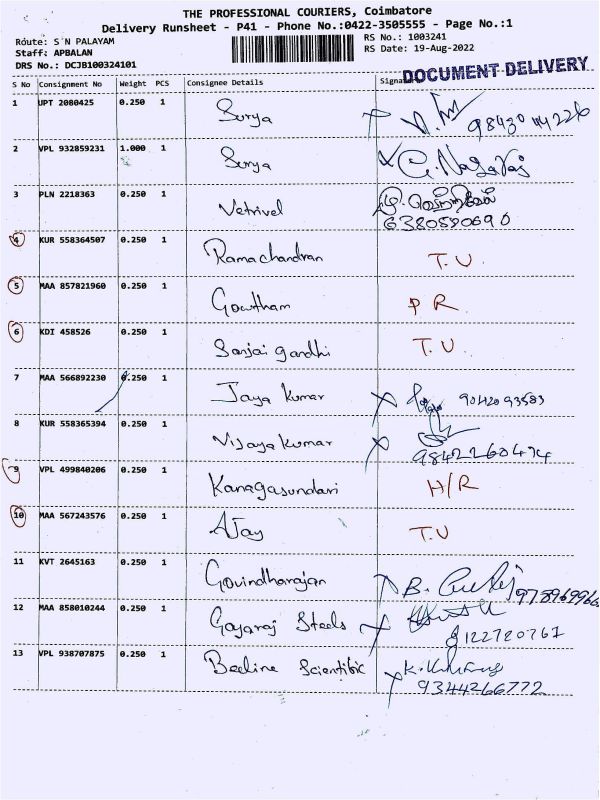 THE PROFESSIONAL COURIERS, Coimbatore
Delivery Runsheet - P41 - Phone No.:0422-3505555 - Page No.:1
Route: S N PALAYAM
Staff: APBALAN
DRS No.: DCJB100324101
RS No.: 1003241
RS Date: 19-Aug-2022
DOCUMENT DELIVERY
S No Consignment No Weight PCS Consignee Details Signature
1 UPT 2080425 0.250 1 Surya
2 VPL 932859231 1.000 1 Surya G. Nagaraj
3 PLN 2218363 0.250 1 Vetrivel
6380590690
4 KUR 558364507 0.250 1 Ramachandran T.U.
5 MAA 857821960 0.250 1 Gowtham P R
6 KDI 458526 0.250 1 Sanjai gandhi T.U.
7 MAA 566892230 0.250 1 Jaya kumar 9042093583
8 KUR 558365394 0.250 1 Vijaya kumar
9842260474
9 VPL 499840206 0.250 1 Kanagasundari H/R
10 MAA 567243576 0.250 1 AJay T.U
11 KVT 2645163 0.250 1 Govindharajan B.
12 MAA 858010244 0.250 1 Gajaraj Steels
8122720767
13 VPL 938707875 0.250 1 Beeline Scientific K.
9344266772